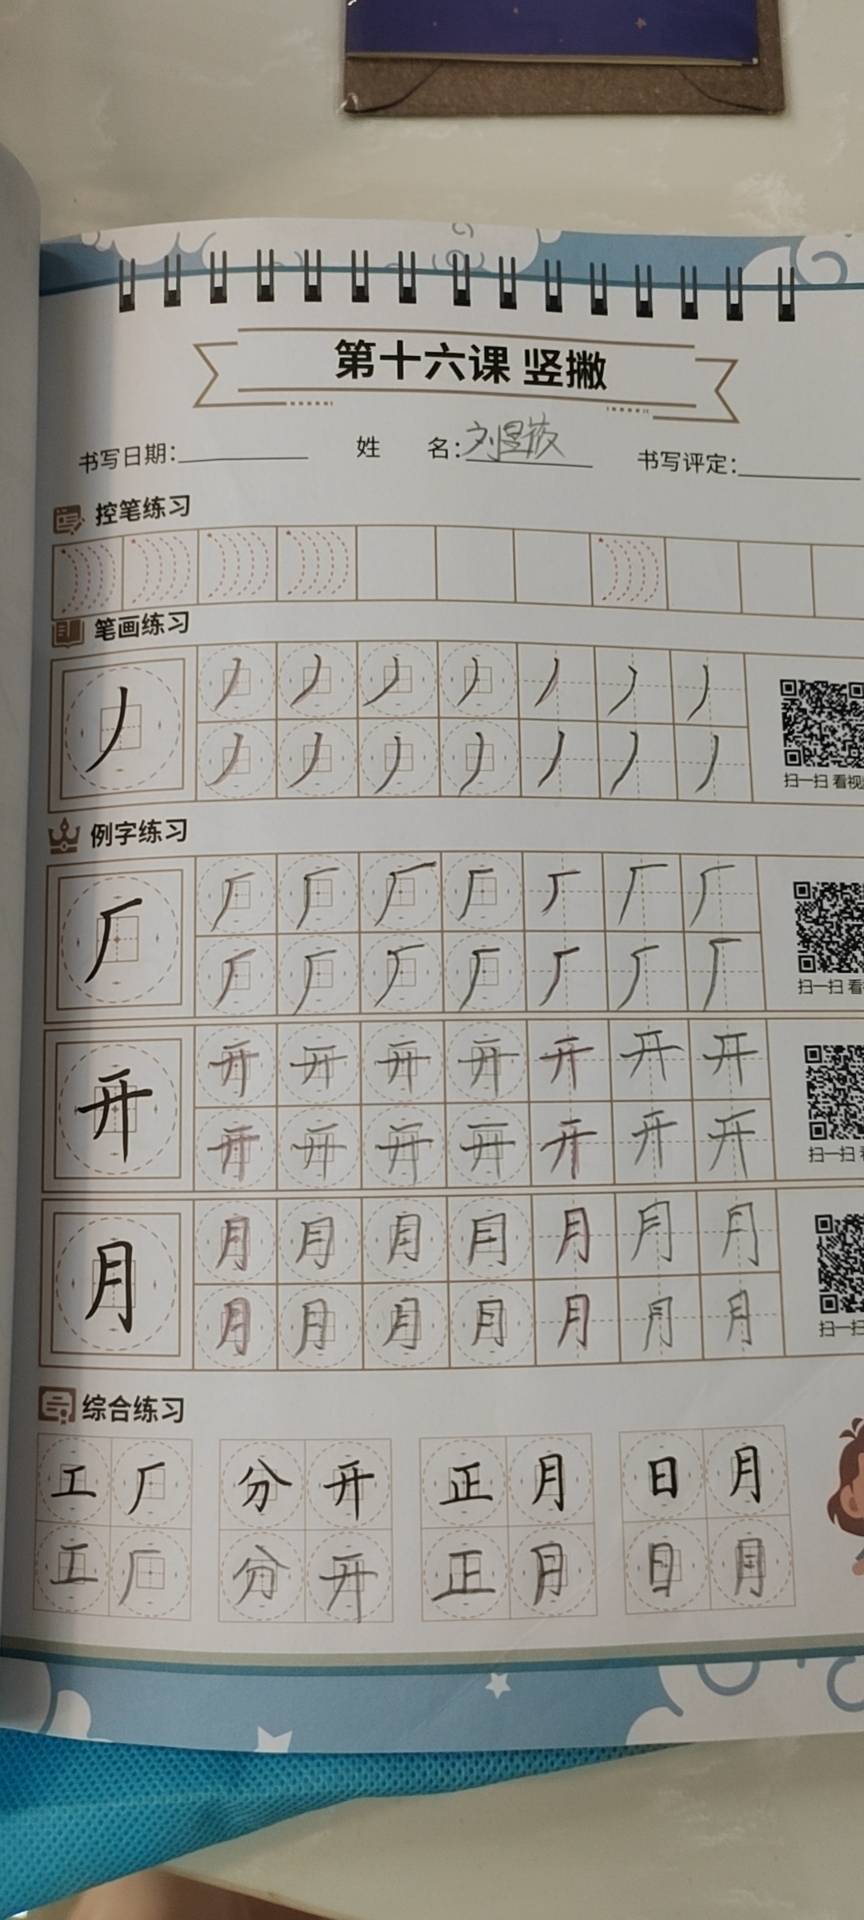 第十六课 竖撇
书写日期： 姓 名：刘昱筱 书写评定：
控笔练习
笔画练习
丿 丿 丿 丿 丿 丿 丿 丿
丿 丿 丿 丿 丿 丿 丿
扫一扫 看视
例字练习
厂 厂 厂 厂 厂 厂 厂 厂
厂 厂 厂 厂 厂 厂 厂
扫一扫 看
开 开 开 开 开 开 开 开
开 开 开 开 开 开 开
扫一扫
月 月 月 月 月 月 月 月
月 月 月 月 月 月 月
扫一扫
综合练习
工 厂 分 开 正 月 日 月
工 厂 分 开 正 月 日 月